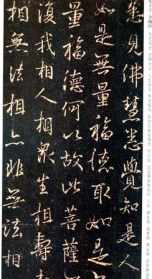 悉見佛慧悉覺知是人
如是無量福德取如是
量福德何以故此菩薩
復我相人相眾生相壽
相無法相亦非無法相